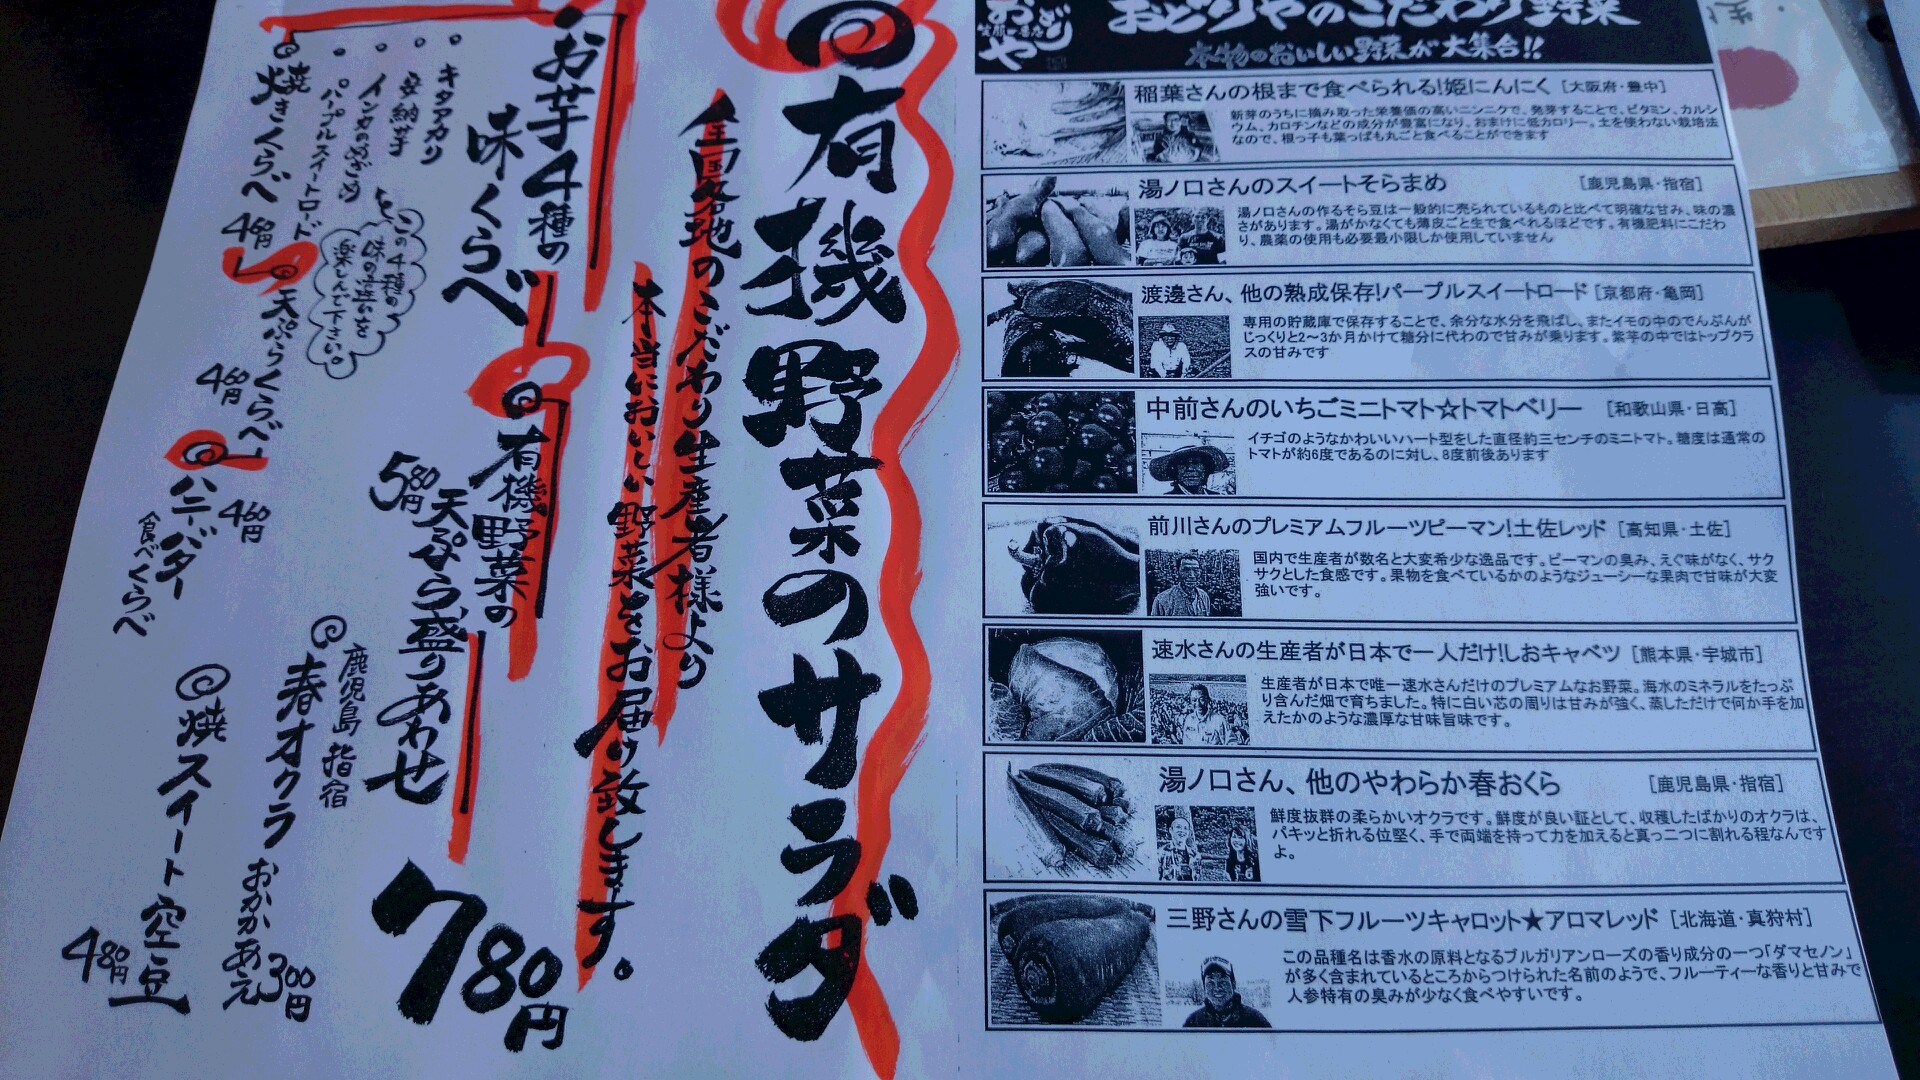 有機野菜のサラダ
全国各地のこだわり生産者様より
本当においしい野菜をお届け致します。
780円
お芋4種の
味くらべ
キタアカリ
安納芋
インカのめざめ
パープルスイートロード
この4種の
味の違いを
楽しんで下さい。
焼きくらべ 460円
天ぷらくらべ 460円
ハニーバター
食べくらべ
460円
有機野菜の
天ぷら盛りあわせ
580円
鹿児島 指宿
春オクラ おかかあえ
300円
焼スイート空豆
480円
おどりや
おどりやのこだわり野菜
本物のおいしい野菜が大集合!!
稲葉さんの根まで食べられる!姫にんにく [大阪府・豊中]
新芽のうちに摘み取った栄養価の高いニンニクで、発芽することで、ビタミン、カルシ
ウム、カロチンなどの成分が豊富になり、おまけに低カロリー。土を使わない栽培法
なので、根っ子も葉っぱも丸ごと食べることができます
湯ノ口さんのスイートそらまめ [鹿児島県・指宿]
湯ノ口さんの作るそら豆は一般的に売られているものと比べて明確な甘み、味の濃
さがあります。湯がかなくても薄皮ごと生で食べれるほどです。有機肥料にこだわ
り、農薬の使用も必要最小限しか使用していません
渡邊さん、他の熟成保存!パープルスイートロード [京都府・亀岡]
専用の貯蔵庫で保存することで、余分な水分を飛ばし、またイモの中のでんぷんが
じっくりと2〜3か月かけて糖分に代わので甘みが乗ります。紫芋の中ではトップクラ
スの甘みです
中前さんのいちごミニトマト☆トマトベリー [和歌山県・日高]
イチゴのようなかわいいハート型をした直径約三センチのミニトマト。糖度は通常の
トマトが約6度であるのに対し、8度前後あります
前川さんのプレミアムフルーツピーマン!土佐レッド [高知県・土佐]
国内で生産者が数名と大変希少な逸品です。ピーマンの臭み、えぐ味がなく、サク
サクとした食感です。果物を食べているかのようなジューシーな果肉で甘味が大変
強いです。
速水さんの生産者が日本で一人だけ!しおキャベツ [熊本県・宇城市]
生産者が日本で唯一速水さんだけのプレミアムなお野菜。海水のミネラルをたっぷ
り含んだ畑で育ちました。特に白い芯の周りは甘みが強く、蒸しただけで何か手を加
えたかのような濃厚な甘味旨味です。
湯ノ口さん、他のやわらか春おくら [鹿児島県・指宿]
鮮度抜群の柔らかいオクラです。鮮度が良い証として、収穫したばかりのオクラは、
パキッと折れる位堅く、手で両端を持って力を加えると真っ二つに割れる程なんです
よ。
三野さんの雪下フルーツキャロット★アロマレッド [北海道・真狩村]
この品種名は香水の原料となるブルガリアンローズの香り成分の一つ「ダマセノン」
が多く含まれているところからつけられた名前のようで、フルーティーな香りと甘みで
人参特有の臭みが少なく食べやすいです。